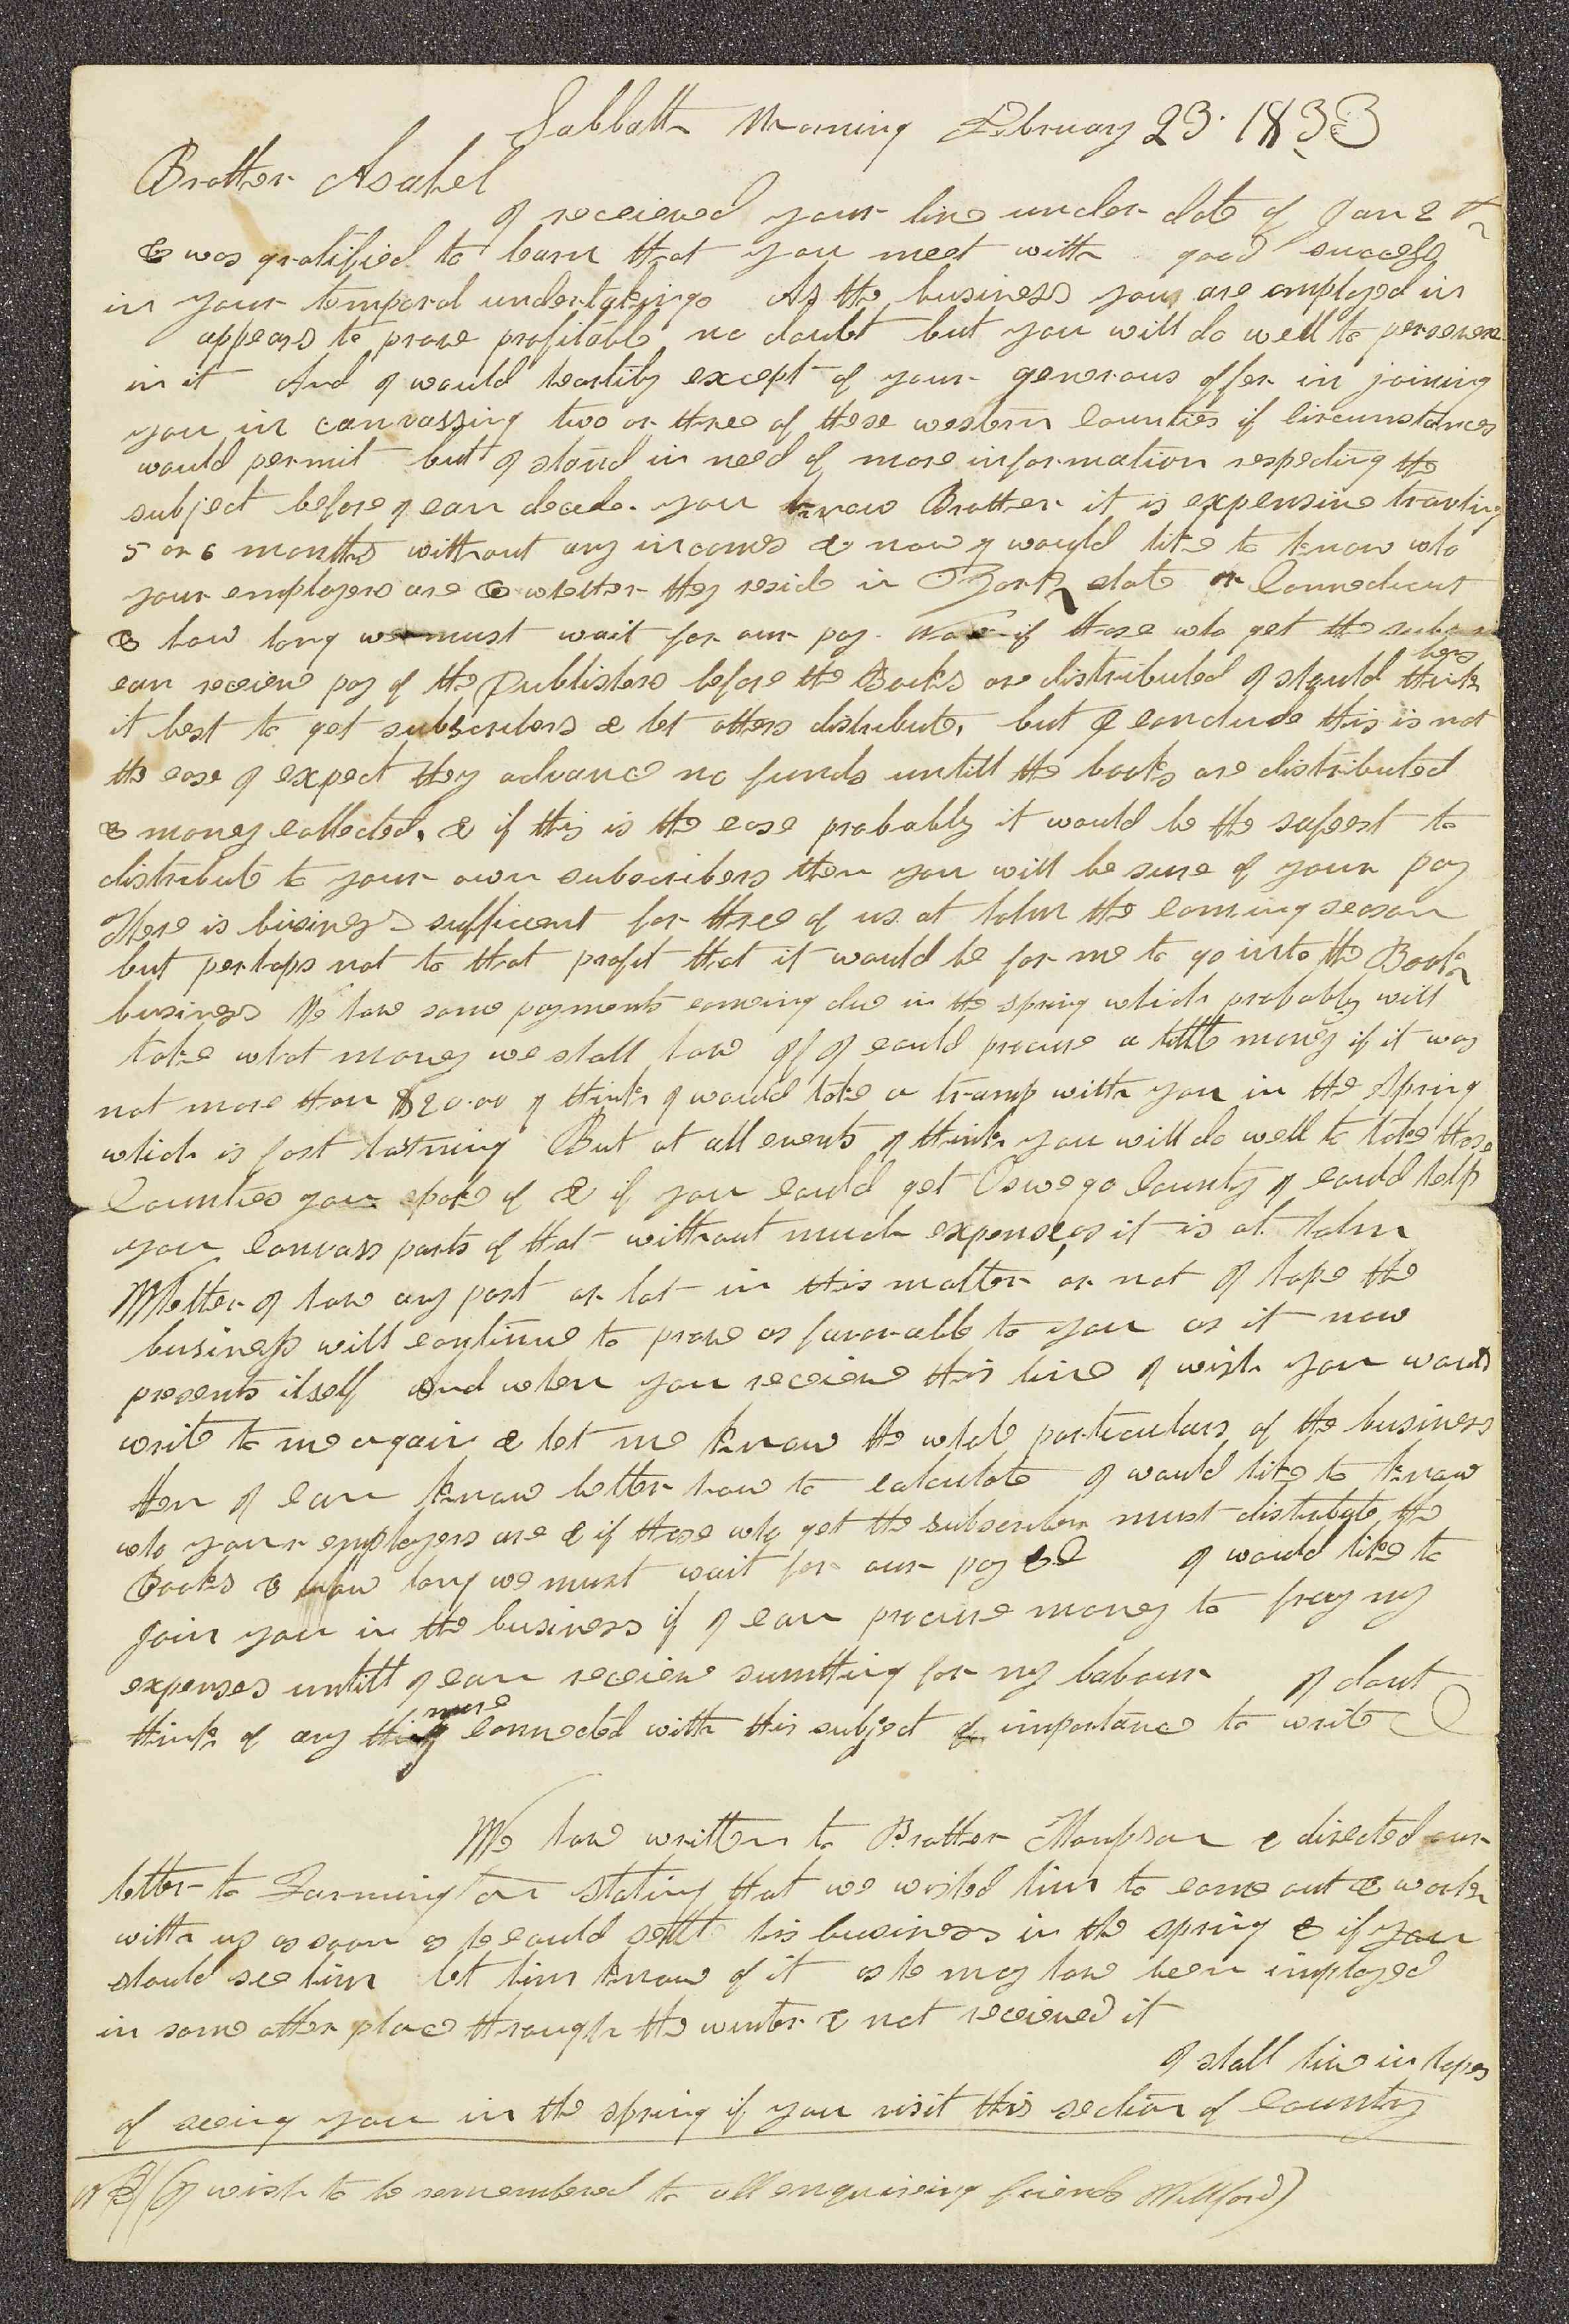 Sabbath Morning February 23. 1833
Brother Asahel
I received your line under date of Jan 2th
& was gratified to learn that you meet with good success
in your temporal undertakings As the business you are employed in
appears to prove profitable no doubt but you will do well to persevere
in it And I would heartily except of your generous offer in joining
you in canvassing two or three of these western Counties if Circumstances
would permit but I stand in need of more information respecting the
subject before I can decide. you know Brother it is expensive travling
5 or 6 months without any incomes & now I would like to know who
your employers are & whether they reside in York state or Connecticut
& how long we must wait for our pay. Now if those who get the subscri
bers
can receive pay of the Publishers before the Books are distributed I should think
it best to get subscribers & let others distribute, but I conclude this is not
the case I expect they advance no funds untill the books are distributed
& money collected, & if this is the case probably it would be the safeest to
distribute to your own subscribers then you will be sure of your pay
There is business sufficient for three of us at hohm the comming season
but perhaps not to that profit that it would be for me to go into the Book
business We have some payments comeing due in the spring which probably will
take what money we shall have If I could procure a little money if it was
not more than $20.00 I think I would take a tramp with you in the spring
which is fast hastning But at all events I think you will do well to take those
Counties you spoke of & if you could get Oswego County I could help
you Canvass parts of that without much expense, as it is at hohm
Whether I have any part or lot in this matter or not I hope the
business will continue to prove as favorable to you as it now
presents itself And when you receive this line I wish you would
write to me again & let me know the whole particulars of the business
then I can know better how to calculate I would like to know
who your employers are & if those who get the subscribers must distribute the
Books & how long we must wait for our pay &C I would like to
join you in the business if I can procure money to fray my
expenses untill I can receive sumthing for my labour I dout
more
think of any thing connected with this subject of importance to write
We have written to Brother Thompson & directed our
letter to Farmington stating that we wished him to come out & work
with us as soon as he could settle his business in the spring & if you
should see him let him know of it as he may have been imployed
in some other place through the winter & not received it
I shall live in hopes
of seeing you in the spring if you visit this section of Country
NB (I wish to be remembered to all enquireing friends Willford)